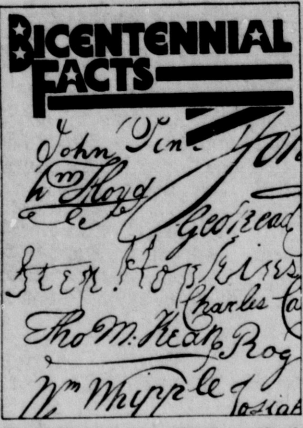 BICENTENNIAL
FACTS
John Pen
Wm Floyd
Geo Read
Step. Hopkins
Charles Ca
Tho M: Kean
Rog
Wm Whipple
Josiah